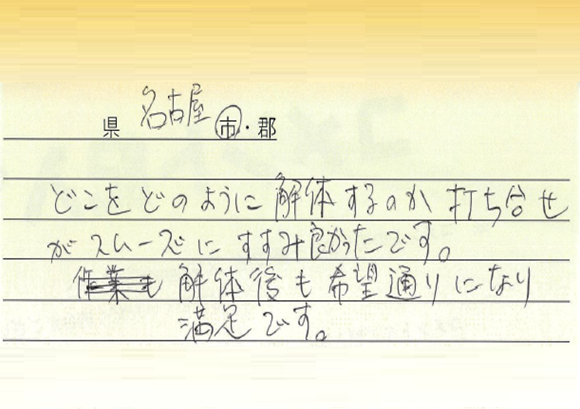 県 名古屋 市・郡
どこをどのように解体するのか打ち合せ
がスムーズにすすみ良かったです。
作業も 解体後も希望通りになり
満足です。